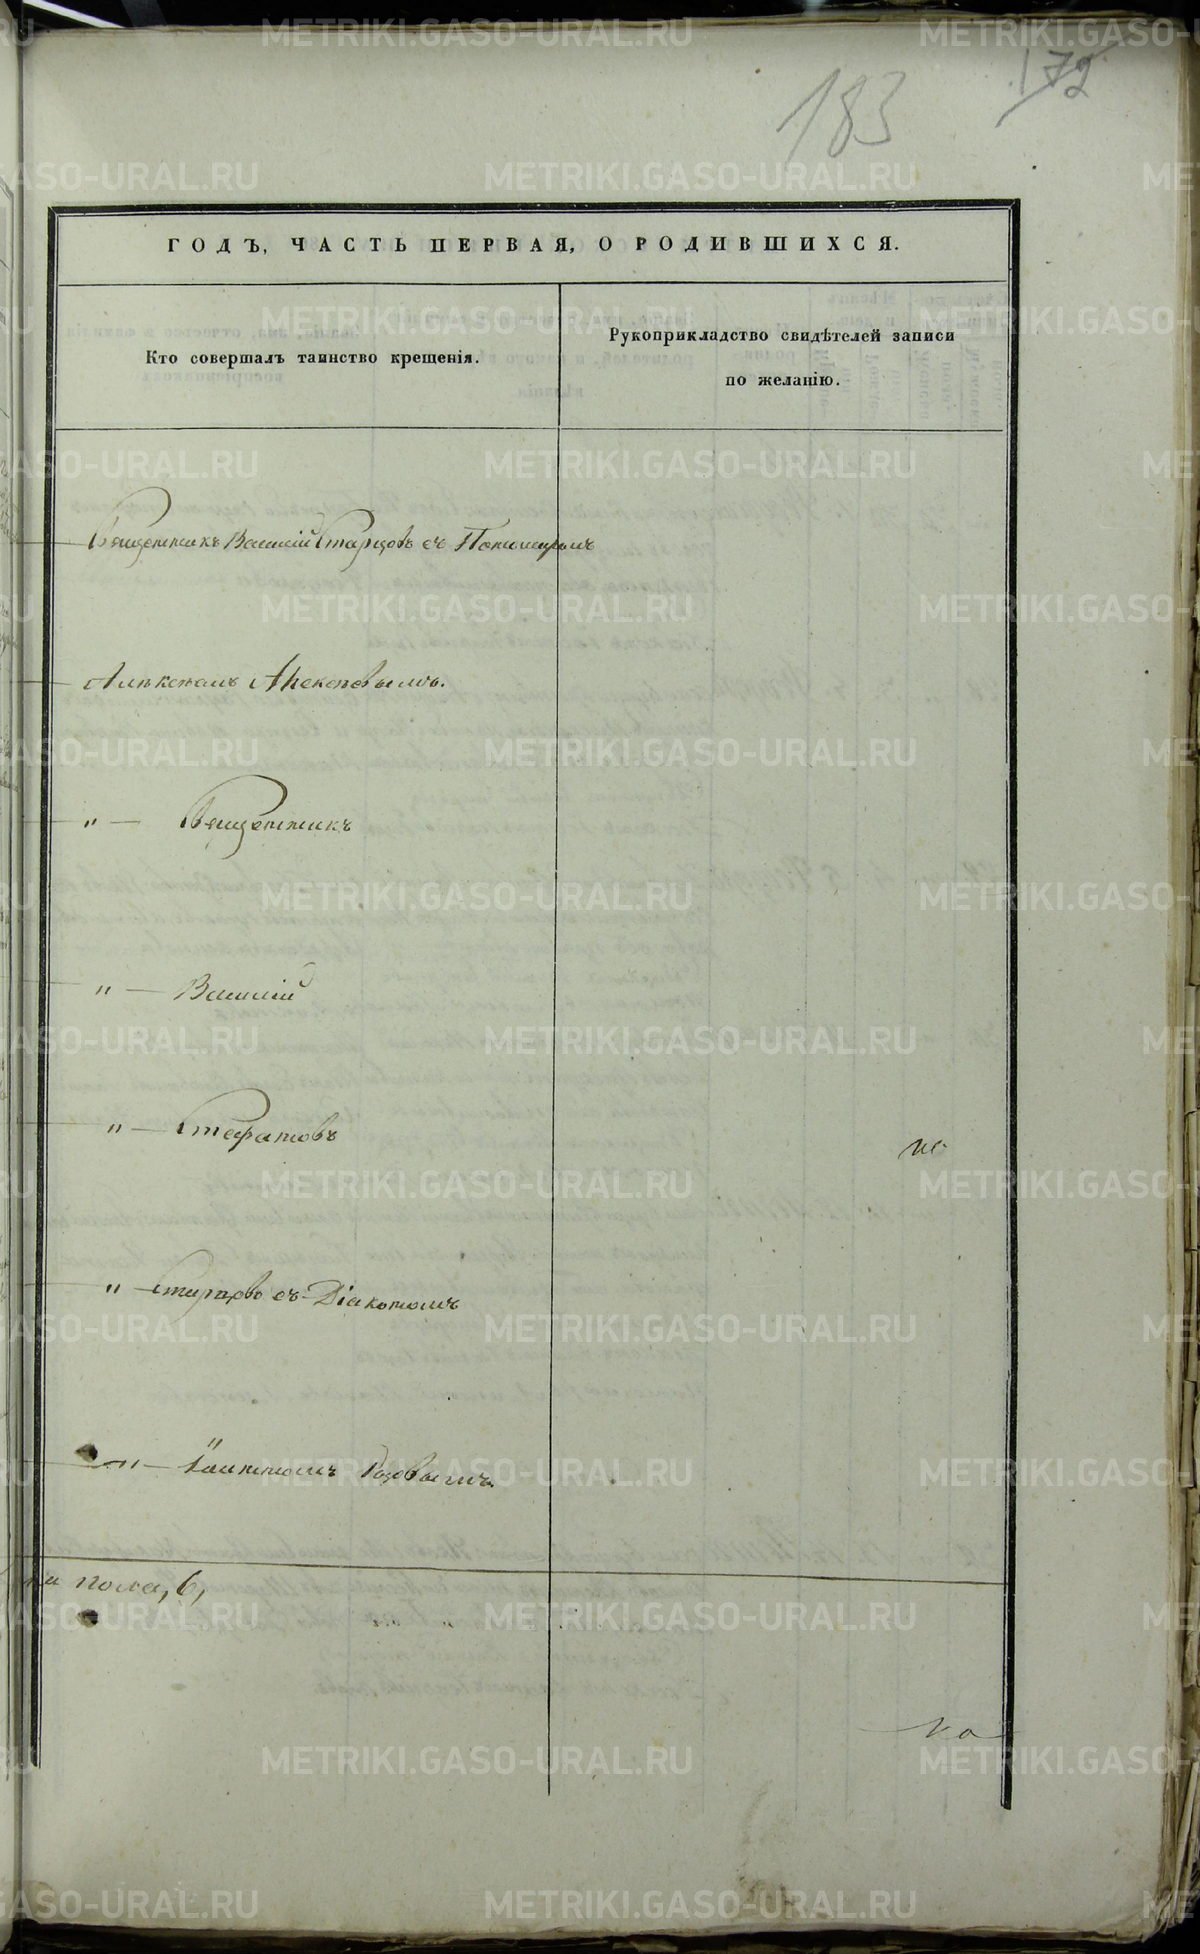 183
172
ГОДЪ, ЧАСТЬ ПЕРВАЯ, О РОДИВШИХСЯ.
Кто совершалъ таинство крещенія.
Рукоприкладство свидѣтелей записи
по желанію.
Священникъ Василій Старцовъ съ Пономаремъ
Алексѣевымъ.
" — Священникъ
" — Василій
" — Стефановъ
" — Старцовъ съ Діакономъ
" — Іоанномъ
на пола, 6,
METRIKI.GASO-URAL.RU